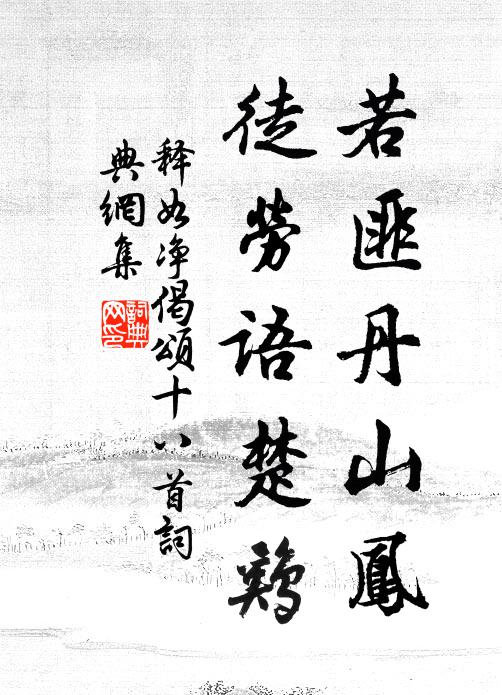 若匪丹山鳳
徒勞語楚鷄
释如净偈頌十八首詞
典網集
詞典
网印